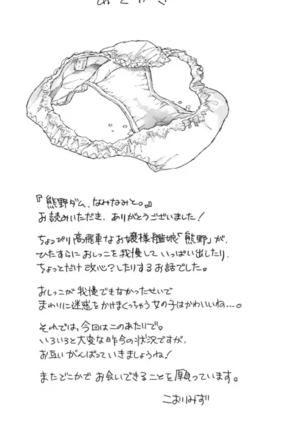 あとがき
『熊野ダム、なみなみと。』
お読みいただき、ありがとうございました!
ちょっぴり高飛車なお嬢様艦娘「熊野」が、
ひたすらにおしっこを我慢していっぱい出したり、
ちょっとだけ改心?したりするお話でした。
おしっこが我慢できなかったせいで
まわりに迷惑をかけまくっちゃう女の子はかわいいね…。
それでは、今回はこのあたりで。
いろいろと大変な昨今の状況ですが、
お互いがんばっていきましょうね!
またどこかでお会いできることを願っています。
こおりみず